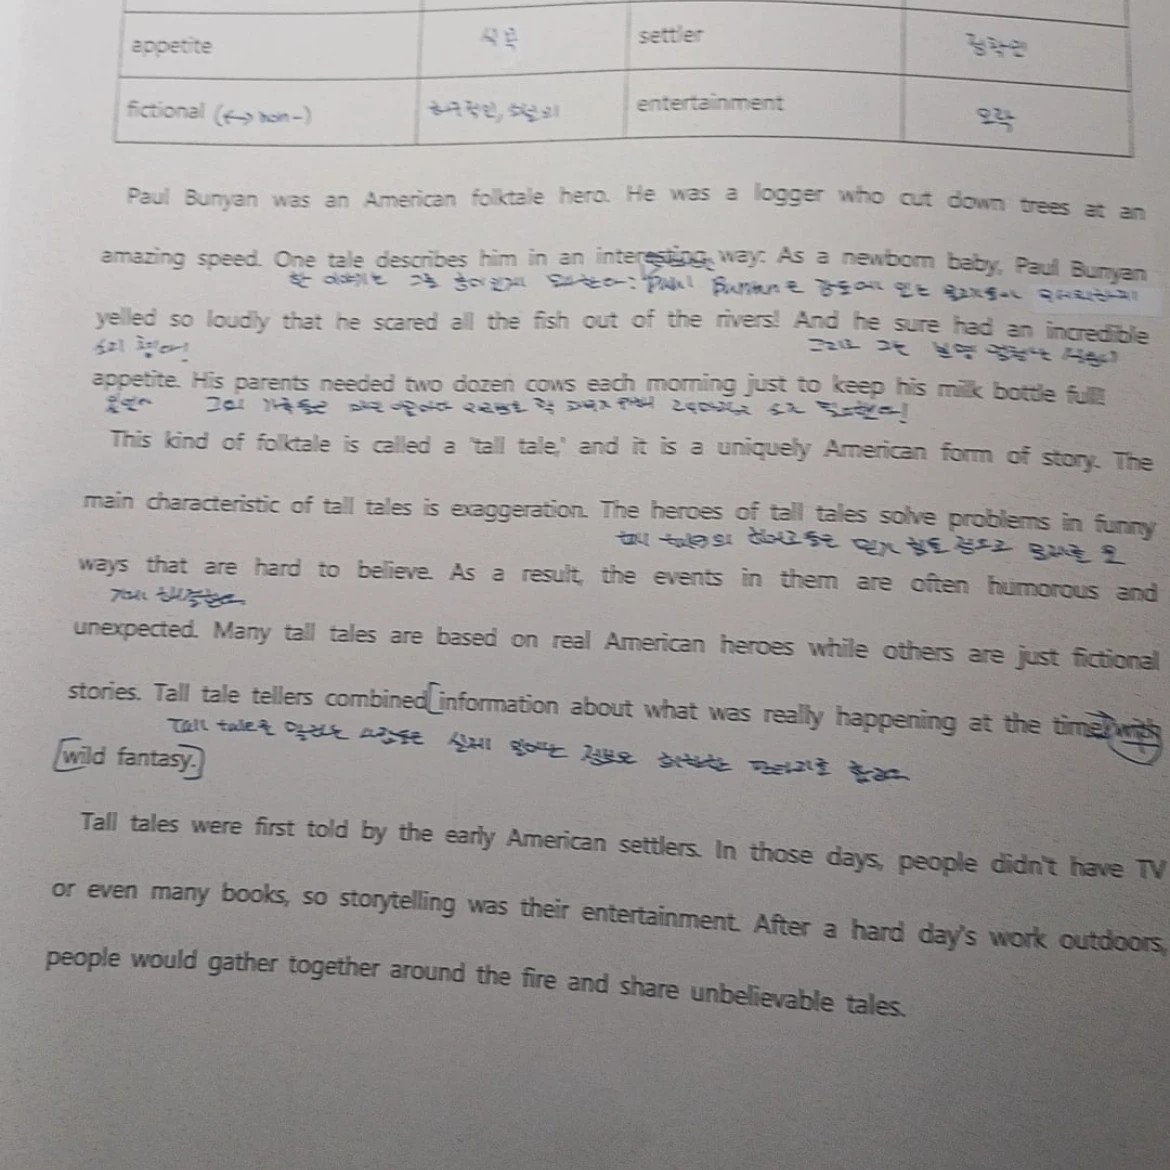 appetite 식욕 settler 정착민
fictional (↔ non-) 허구적인, entertainment 오락
Paul Bunyan was an American folktale hero. He was a logger who cut down trees at an
amazing speed. One tale describes him in an interesting way: As a newborn baby, Paul Bunyan
한 이야기는 그를 흥미롭게 묘사한다: Paul Bunyan은
yelled so loudly that he scared all the fish out of the rivers! And he sure had an incredible
소리 쳤다! 그리고 그는 분명 엄청난 식욕이
appetite. His parents needed two dozen cows each morning just to keep his milk bottle full!
있었다 그의
This kind of folktale is called a 'tall tale,' and it is a uniquely American form of story. The
main characteristic of tall tales is exaggeration. The heroes of tall tales solve problems in funny
tall tale의 히어로들은 믿기 힘들 정도로 문제를 웃
ways that are hard to believe. As a result, the events in them are often humorous and
기게 해결한다.
unexpected. Many tall tales are based on real American heroes while others are just fictional
stories. Tall tale tellers combined [information about what was really happening at the time] with
Tall tale을 말하는 사람들은 실제 일어나는 정보와 판타지를
[wild fantasy.]
Tall tales were first told by the early American settlers. In those days, people didn't have TV
or even many books, so storytelling was their entertainment. After a hard day's work outdoors,
people would gather together around the fire and share unbelievable tales.